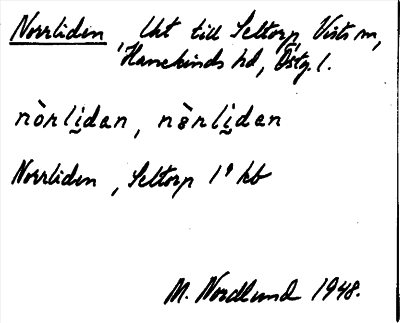 Norrliden, Lht till Seltorp, Vists sn,
Hanekinds hd, Östg. l.
nòrlḭdan, nɞ̀rlḭdan
Norrliden, Seltorp 1⁹ kb
M. Nordlund 1948.